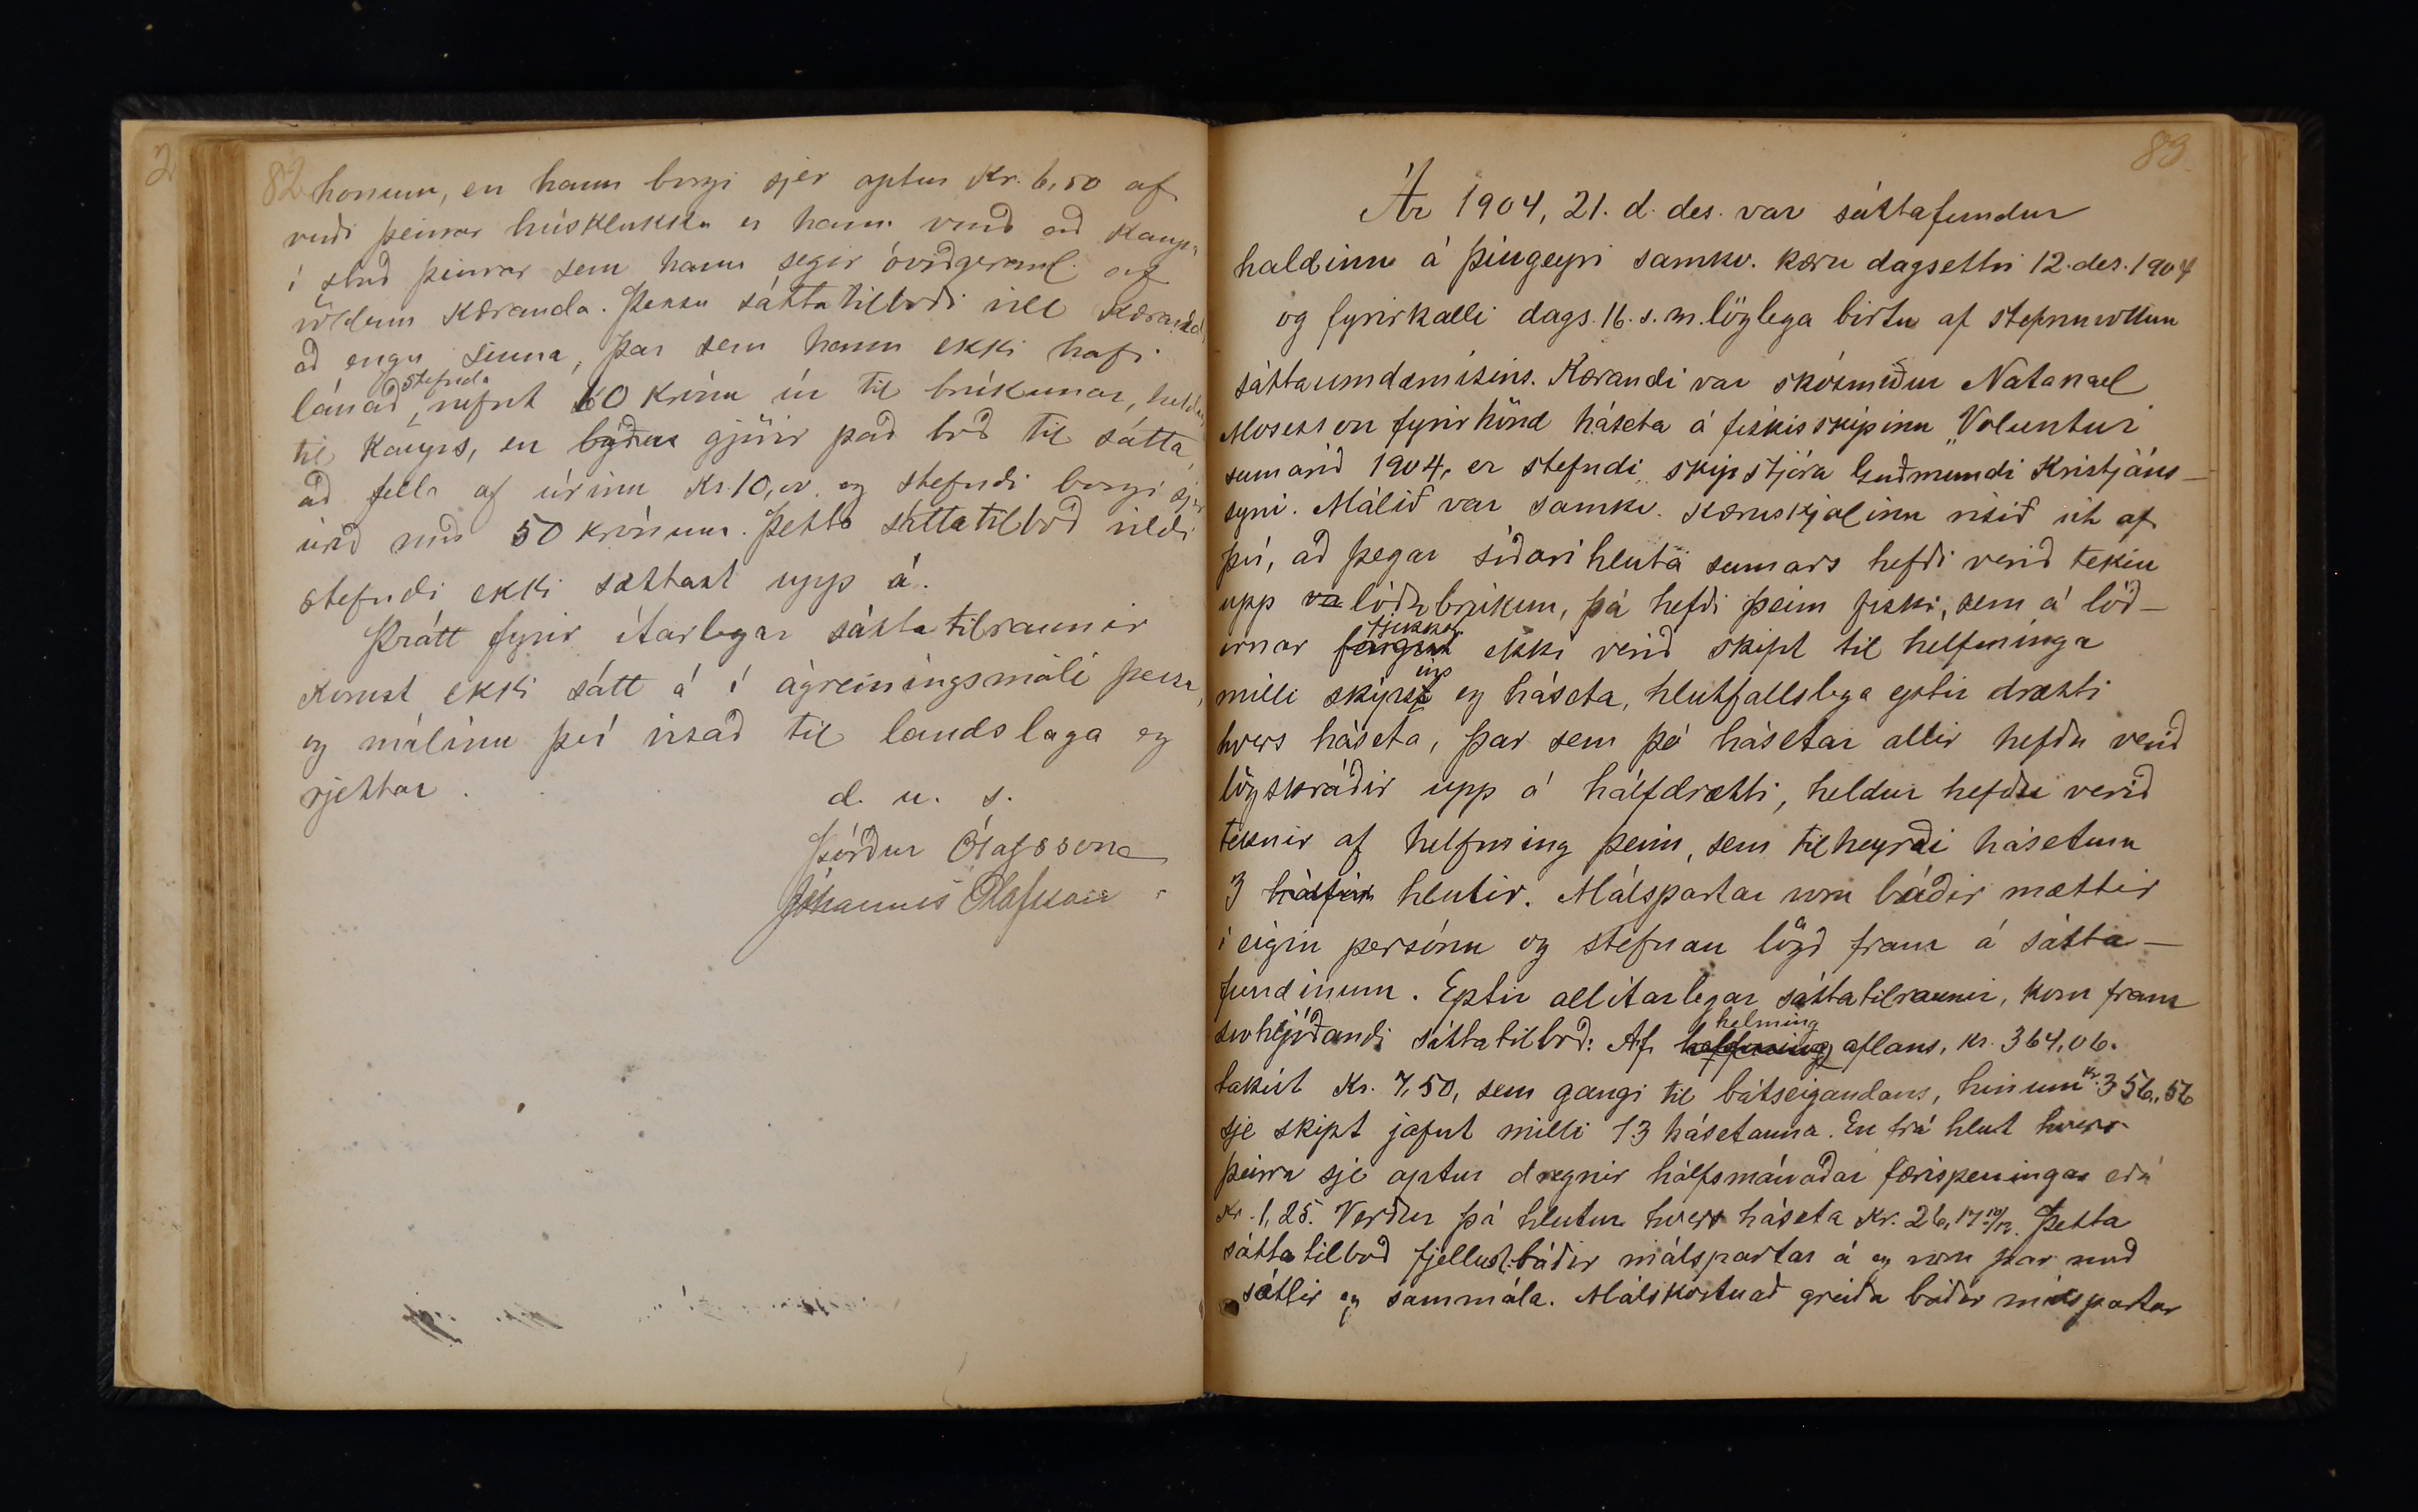 2
82
honum, en hann borgi sjer aptur Kr. 6,50 af
verði þeirrar húsklukku er hann varð að kaupa
í stað þeirrar sem hann segir óviðgeranl. af
völdum Kæranda. Þessu sáttatilboði vill Kærandi
að engu sinna, þar sem hann ekki hafi
stefnda
lánað, nefnt 60 króna úr til brúkunar, heldur
til kaups, en býður gjörir það boð til sátta,
að fella af úrinu Kr. 10,00 og stefndi borgi sjer
úrið með 50 krónum. Þetta sáttatilboð vildi
stefndi ekki sættast upp á.
Þrátt fyrir ítarlegar sáttatilraunir
komst ekki sátt á í ágreiningsmáli þessu,
og málinu því vísað til landslaga og
rjettar.
d. u. s.
Þórður Ólafsson
Jóhannes Ólafsson
83
Ár 1904, 21. d. des. var sáttafundur
haldinn á Þingeyri samkv. kæru dagsettri 12. des. 1904
og fyrirkalli dags. 16. s. m. löglega birtu af stefnuvottum
sáttaumdæmisins. Kærandi var skósmiður Natanael
Mosesson fyrir hönd háseta á fiskisskipinu „Voluntur
sumarið 1904, er stefndi skipstjóra Guðmundi Kristjáns-
syni. Málið var samkv. kæruskjalinu risið út af
því, að þegar síðari hluta sumars hefði verið tekin
upp va lóðabrúkun, þá hefði þeim fiski, sem á lóð-
fjekkst
irnar fangist ekki verið skipt til helfninga
ins
milli skips og háseta, hlutfallslega eptir drætti
hvers háseta, þar sem þó hásetar allir hefðu verið
lögskráðir upp á hálfdrætti, heldur hefðu verið
teknir af helfning þeim, sem tilheyrði hásetum
3 hálfir hlutir. Málspartar voru báðir mættir
í eigin persónu og stefnan lögð fram á sátta-
fundinum. Eptir allítarlegar sáttatilraunir, kom fram
helming
svohljóðandi sáttatilboð: Af helfning aflans, kr. 364,06.
takist Kr. 7,50, sem gangi til bátseigandans, hinum kr. 356,56
sje skipt jafnt milli 13 hásetanna. En frá hlut hvers
þeirra sje aptur dregnir hálfsmánaðar færispeningar eða
Kr. 1,25. Verður þá hlutur hvers háseta Kr. 26,17 10/13. Þetta
sáttatilboð fjellust báðir málspartar á og voru þar með
sáttir og sammála. Málskostnað greiða báðir málspartar